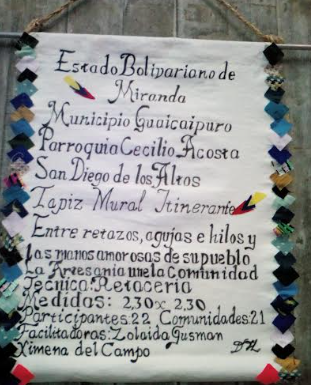 Estado Bolivariano de
Miranda
Municipio Guaicaipuro
Parroquia Cecilio Acosta
San Diego de los Altos
Tapiz Mural Itinerante
Entre retazos, agujas e hilos y
las manos amorosas de su pueblo
La Artesania une la Comunidad
Técnica: Retaceria
Medidas: 2,30 x 2,30
Participantes: 22 Comunidades: 21
Facilitadoras: Zolaida Gusman
Ximena del Campo